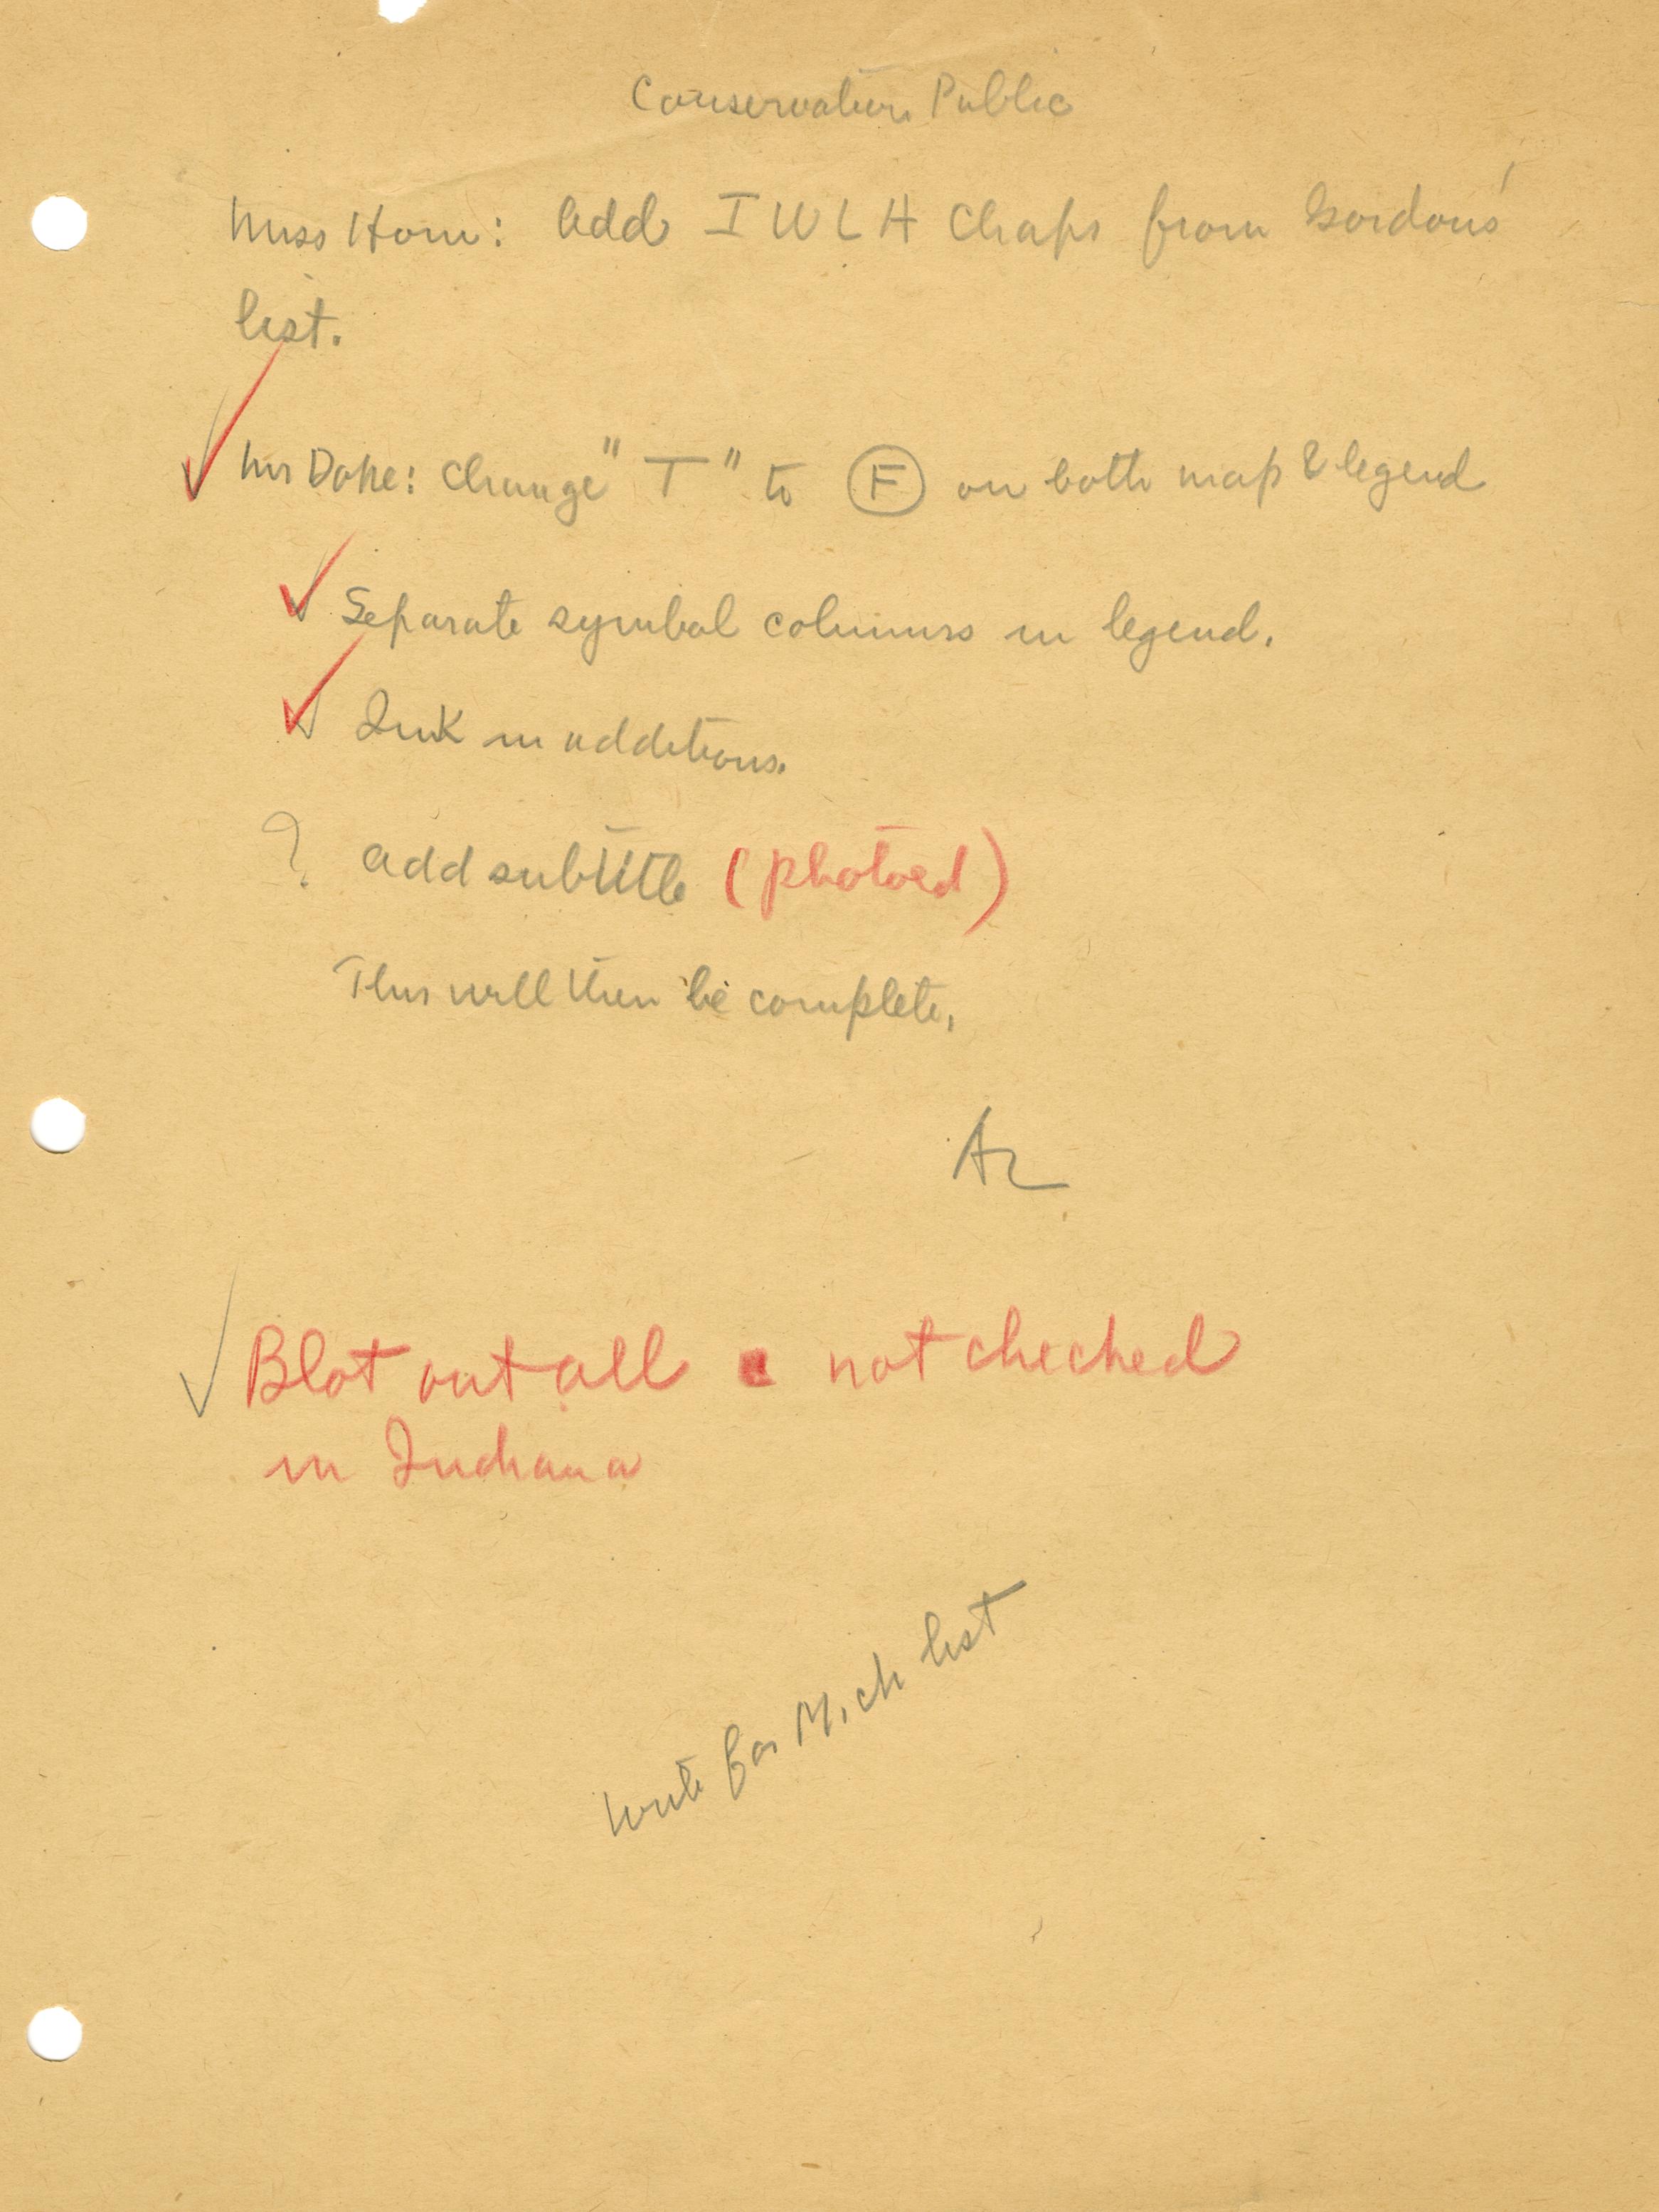 Conservation Public
Miss Horn: Add I W L A Chaps from Gordons'
list.
Mr Doke: Change "T" to F on both map & legend
Separate symbol columns in legend.
Ink in additions.
? add subtitle (photoed)
This will then be complete.
AL
Blot out all not checked
in Indiana
Write for Mich list